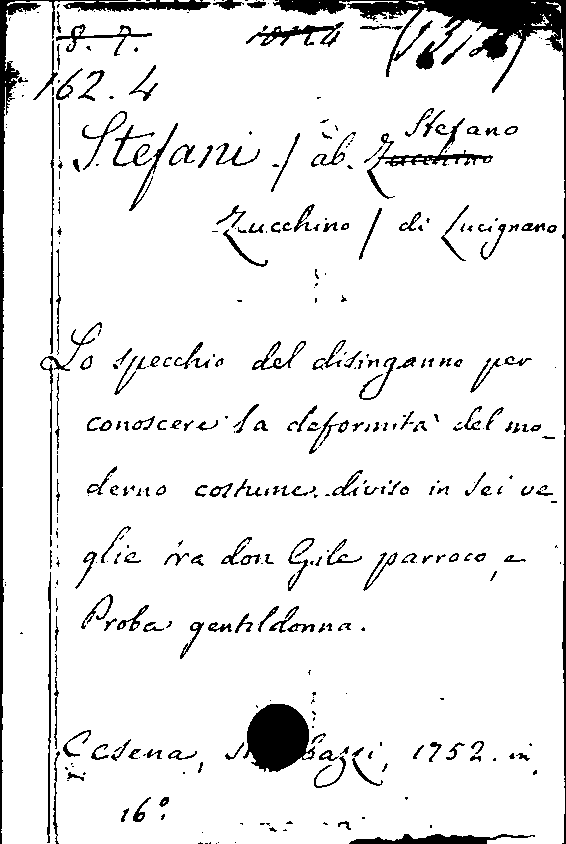 8. 7.
162.4
Stefani / ab. Stefano
Zucchino
Zucchino / di Lucignano.
Lo specchio del disinganno per
conoscere la deformità del mo-
derno costume diviso in sei ve-
glie tra don Gile parroco, e
Proba gentildonna.
Cesena, bazzi, 1752. in
16°